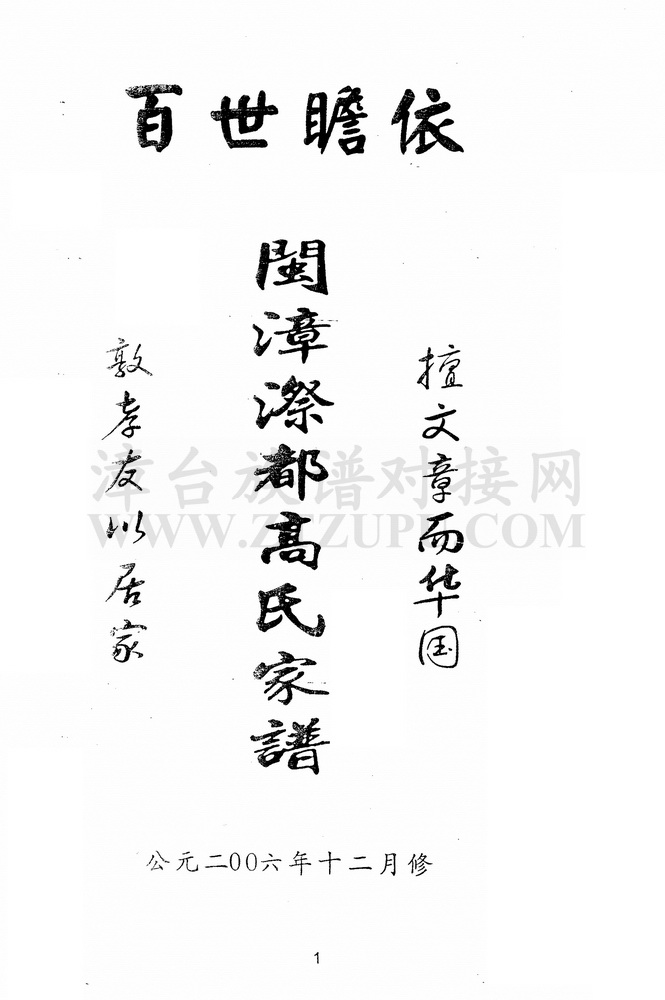 百世瞻依
擅文章而华国
閩漳漈都高氏家譜
敦孝友以居家
公元二00六年十二月修
漳台族谱对接网
WWW.ZTZUPU.COM
1